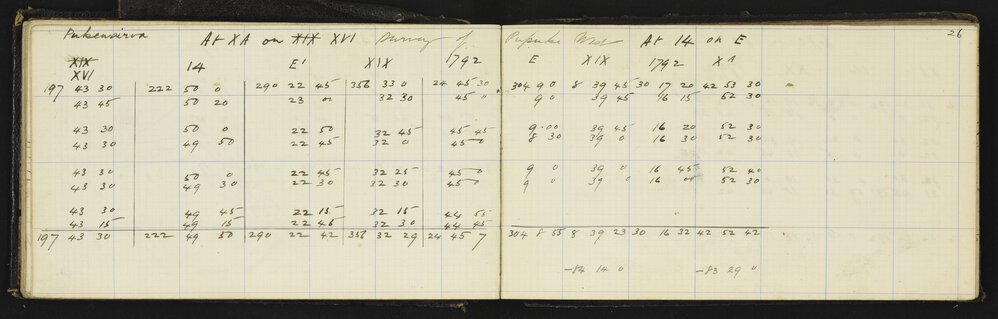 26
At XA on XIX XVI Survey of
XIX 14 E' XIX 1792
XVI
197 43 30 222 50 0 290 22 45 356 33 0 24 45 30
43 45 50 20 23 0 32 30 45 0
43 30 50 0 22 50 32 45 45 45
43 30 49 50 22 45 32 0 45 0
43 30 50 0 22 45 32 25 45 0
43 30 49 30 22 30 32 30 45 0
43 30 49 45 22 15 32 15 44 55
43 15 49 15 22 45 32 30 44 45
197 43 30 222 49 50 290 22 42 356 32 29 24 45 7
At 14 on E
E XIX 1792 XA
304 9 0 8 39 45 30 17 20 42 53 30
9 0 39 45 16 15 52 30
9 00 39 45 16 20 52 30
8 30 39 0 16 30 52 30
9 0 39 0 16 45 52 40
9 0 39 0 16 00 52 30
304 8 55 8 39 23 30 16 32 42 52 42
-84 14 0 -83 29 0